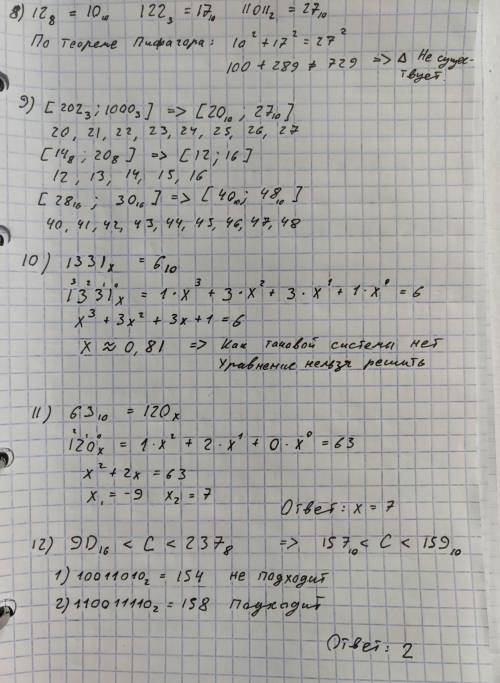 8) 12₈ = 10₁₀ 122₃ = 17₁₀ 11011₂ = 27₁₀
По теореме Пифагора: 10² + 17² = 27²
100 + 289 ≠ 729 => Δ Не сущес-
твует.
9) [202₃; 1000₃] => [20₁₀; 27₁₀]
20, 21, 22, 23, 24, 25, 26, 27
[14₈; 20₈] => [12; 16]
12, 13, 14, 15, 16
[28₁₆; 30₁₆] => [40₁₀; 48₁₀]
40, 41, 42, 43, 44, 45, 46, 47, 48
10) 1331ₓ = 6₁₀
1³3²3¹1⁰ₓ = 1·x³ + 3·x² + 3·x¹ + 1·x⁰ = 6
x³ + 3x² + 3x + 1 = 6
x ≈ 0,81 => Как таковой системы нет
Уравнение нельзя решить
11) 63₁₀ = 120ₓ
1²2¹0⁰ₓ = 1·x² + 2·x¹ + 0·x⁰ = 63
x² + 2x = 63
x₁ = -9 x₂ = 7
Ответ: x = 7
12) 9D₁₆ < C < 237₈ => 157₁₀ < C < 159₁₀
1) 10011010₂ = 154 не подходит
2) 110011110₂ = 158 подходит
Ответ: 2